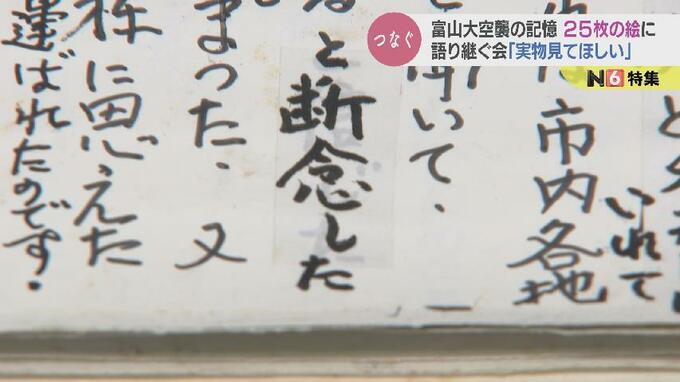 つなぐ
富山大空襲の記憶 25枚の絵に
語り継ぐ会「実物見てほしい」
N6 特集
いれて
市内各地
いて、
と断念した
まった、又
に思えた
運ばれたのです.